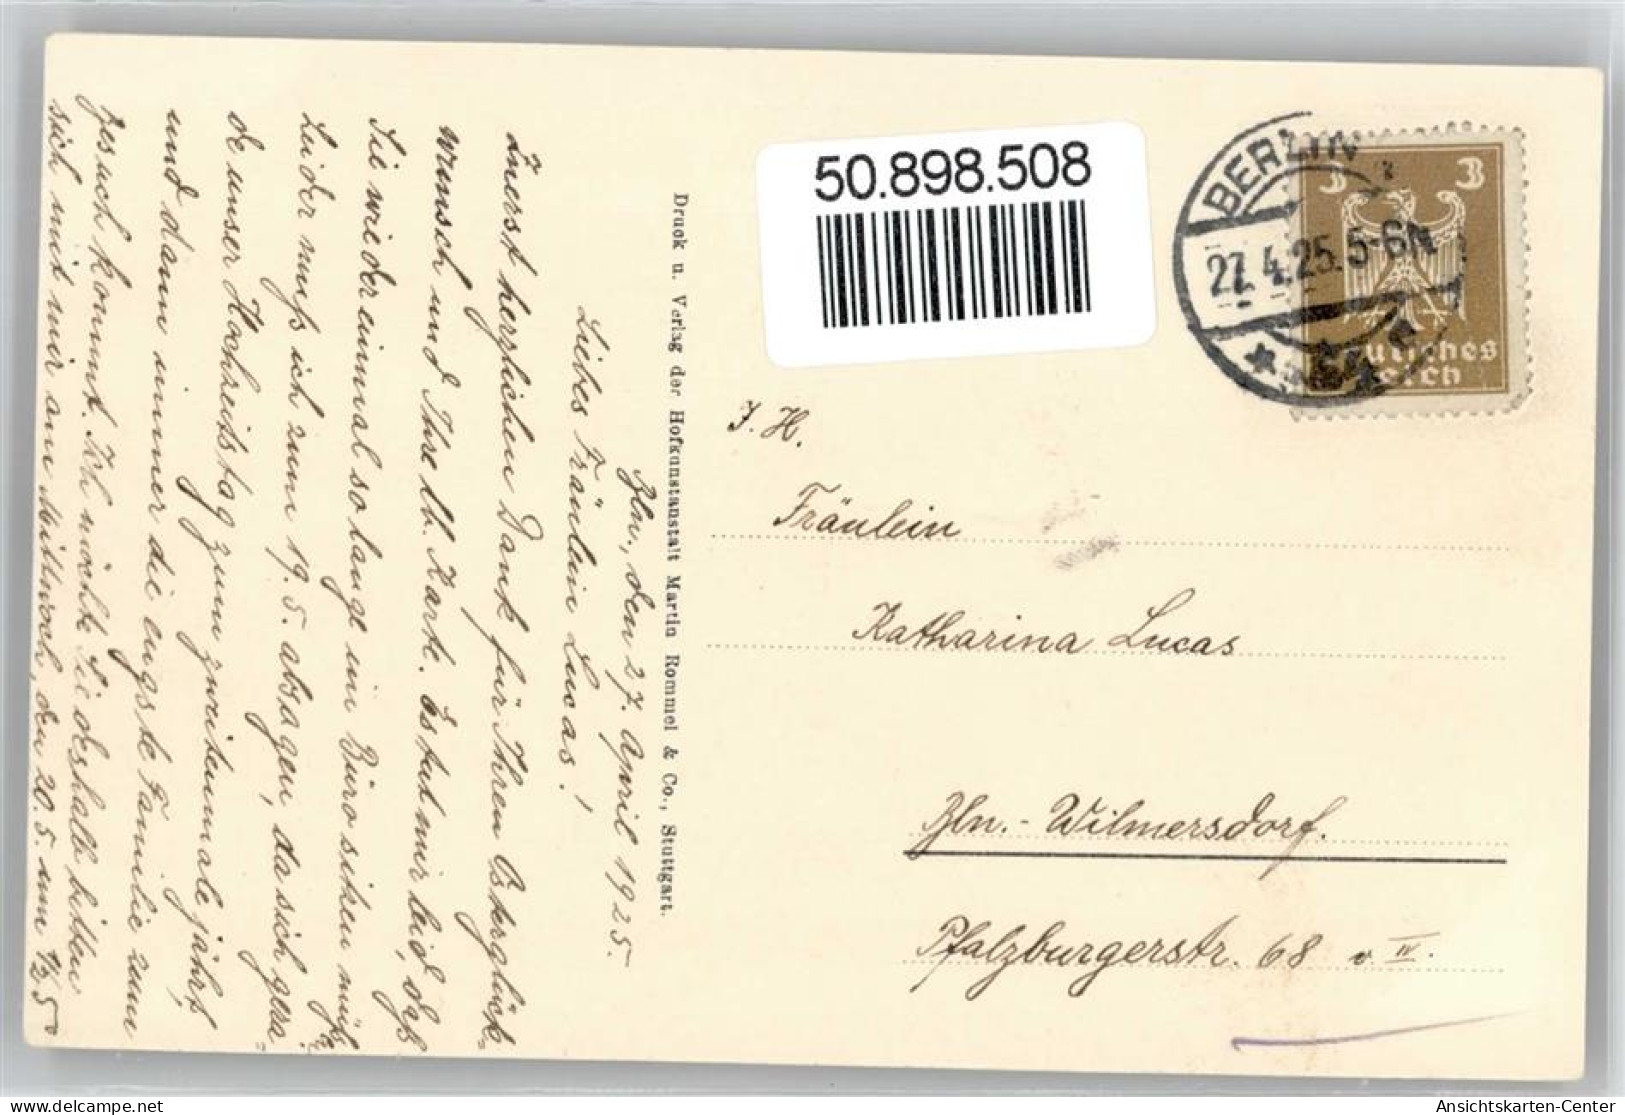 Bln., den 27. April 1925.
Liebes Fräulein Lucas!
Zuerst herzlichen Dank für Ihren Osterglück-
wunsch und Ihre lb. Karte. Es tut mir leid, daß
Sie wieder einmal so lange im Büro sitzen müssen.
Leider muß ich zum 19. 5. absagen, da sich gera-
de unser Hochzeitstag zum zweitenmale jährt,
und dann immer die engste Familie zum
Besuch kommt. Ich möchte Sie deshalb bitten
sich mit mir am Mittwoch, den 20. 5. um 1/2 5
Druck u. Verlag der Hofkunstanstalt Martin Rommel & Co., Stuttgart.
50.898.508
BERLIN
27. 4. 25. 5-6N
3 3
Deutsches
Reich
I. H.
Fräulein
Katharina Lucas
Bln.- Wilmersdorf.
Pfalzburgerstr. 68 v IV.
hip-post.com
Ansichtskarten-Center